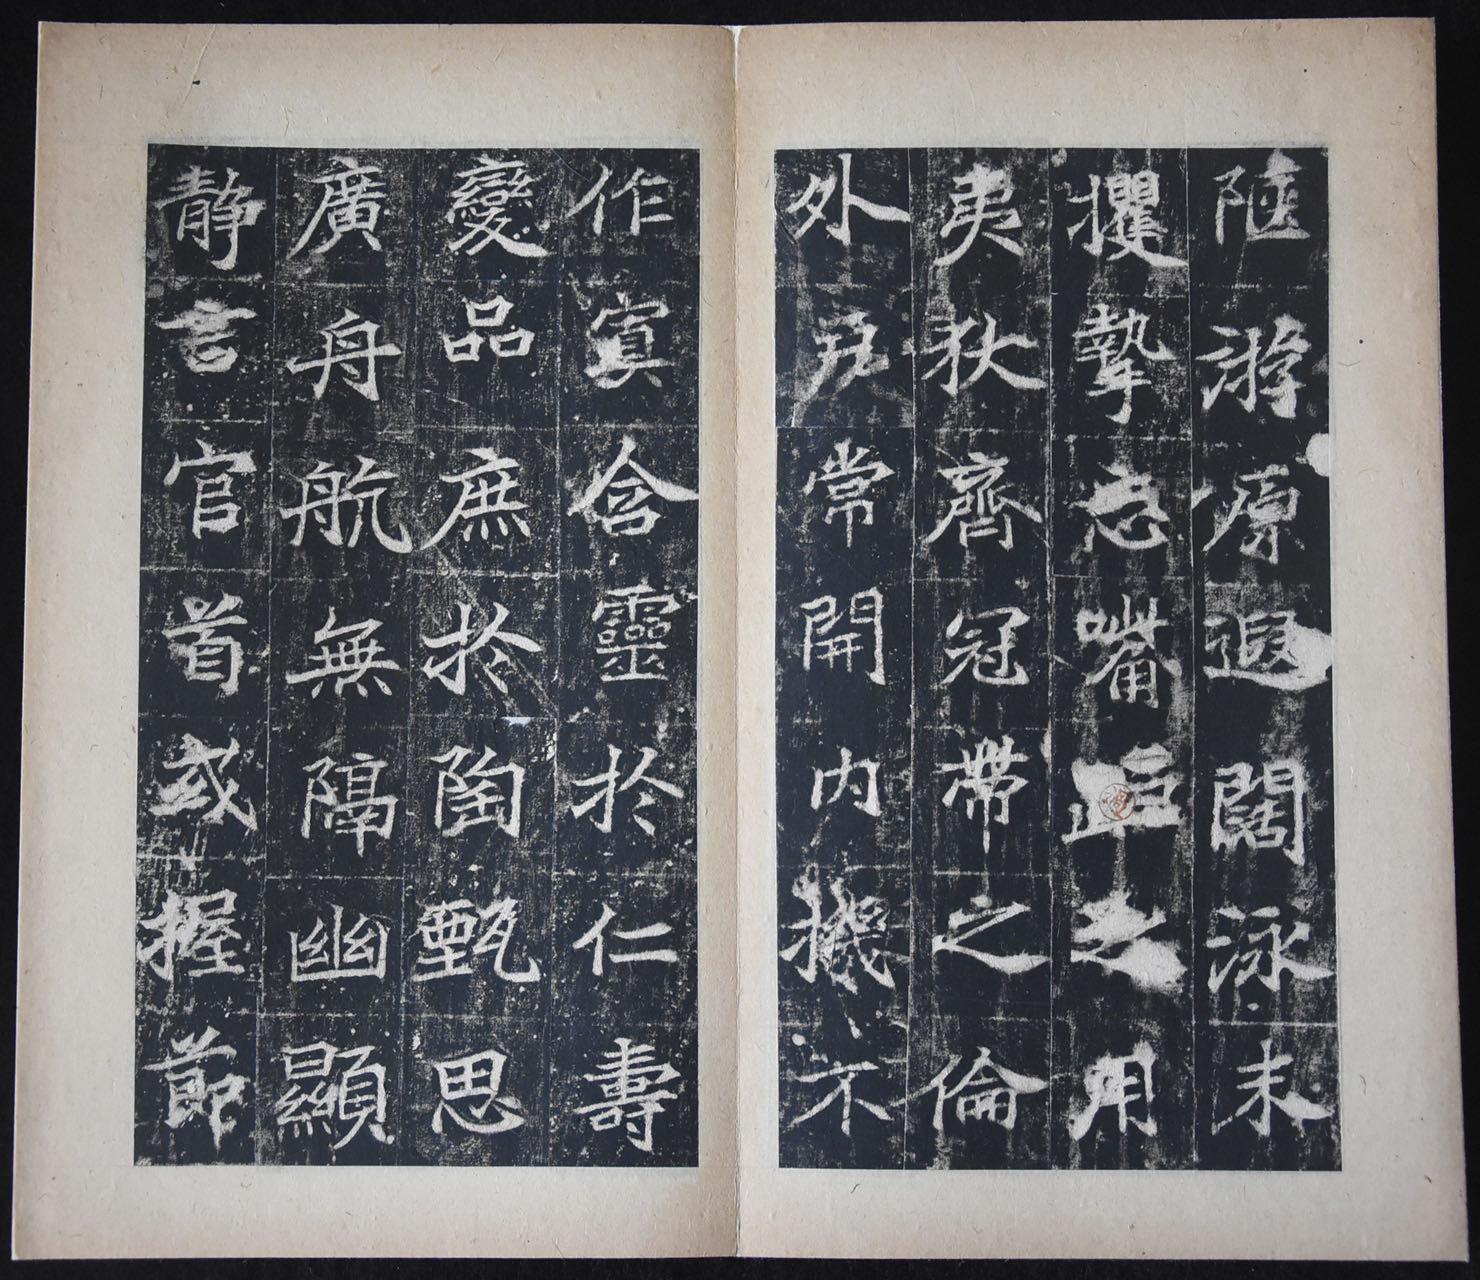 陿游原退闊泳末
攫摯忘嘴距之用
夷狄齊冠帶之倫
外戶常開內機不
作寘含靈於仁壽
變品庶於陶甄思
廣舟航無隔幽顯
靜言官首或握節